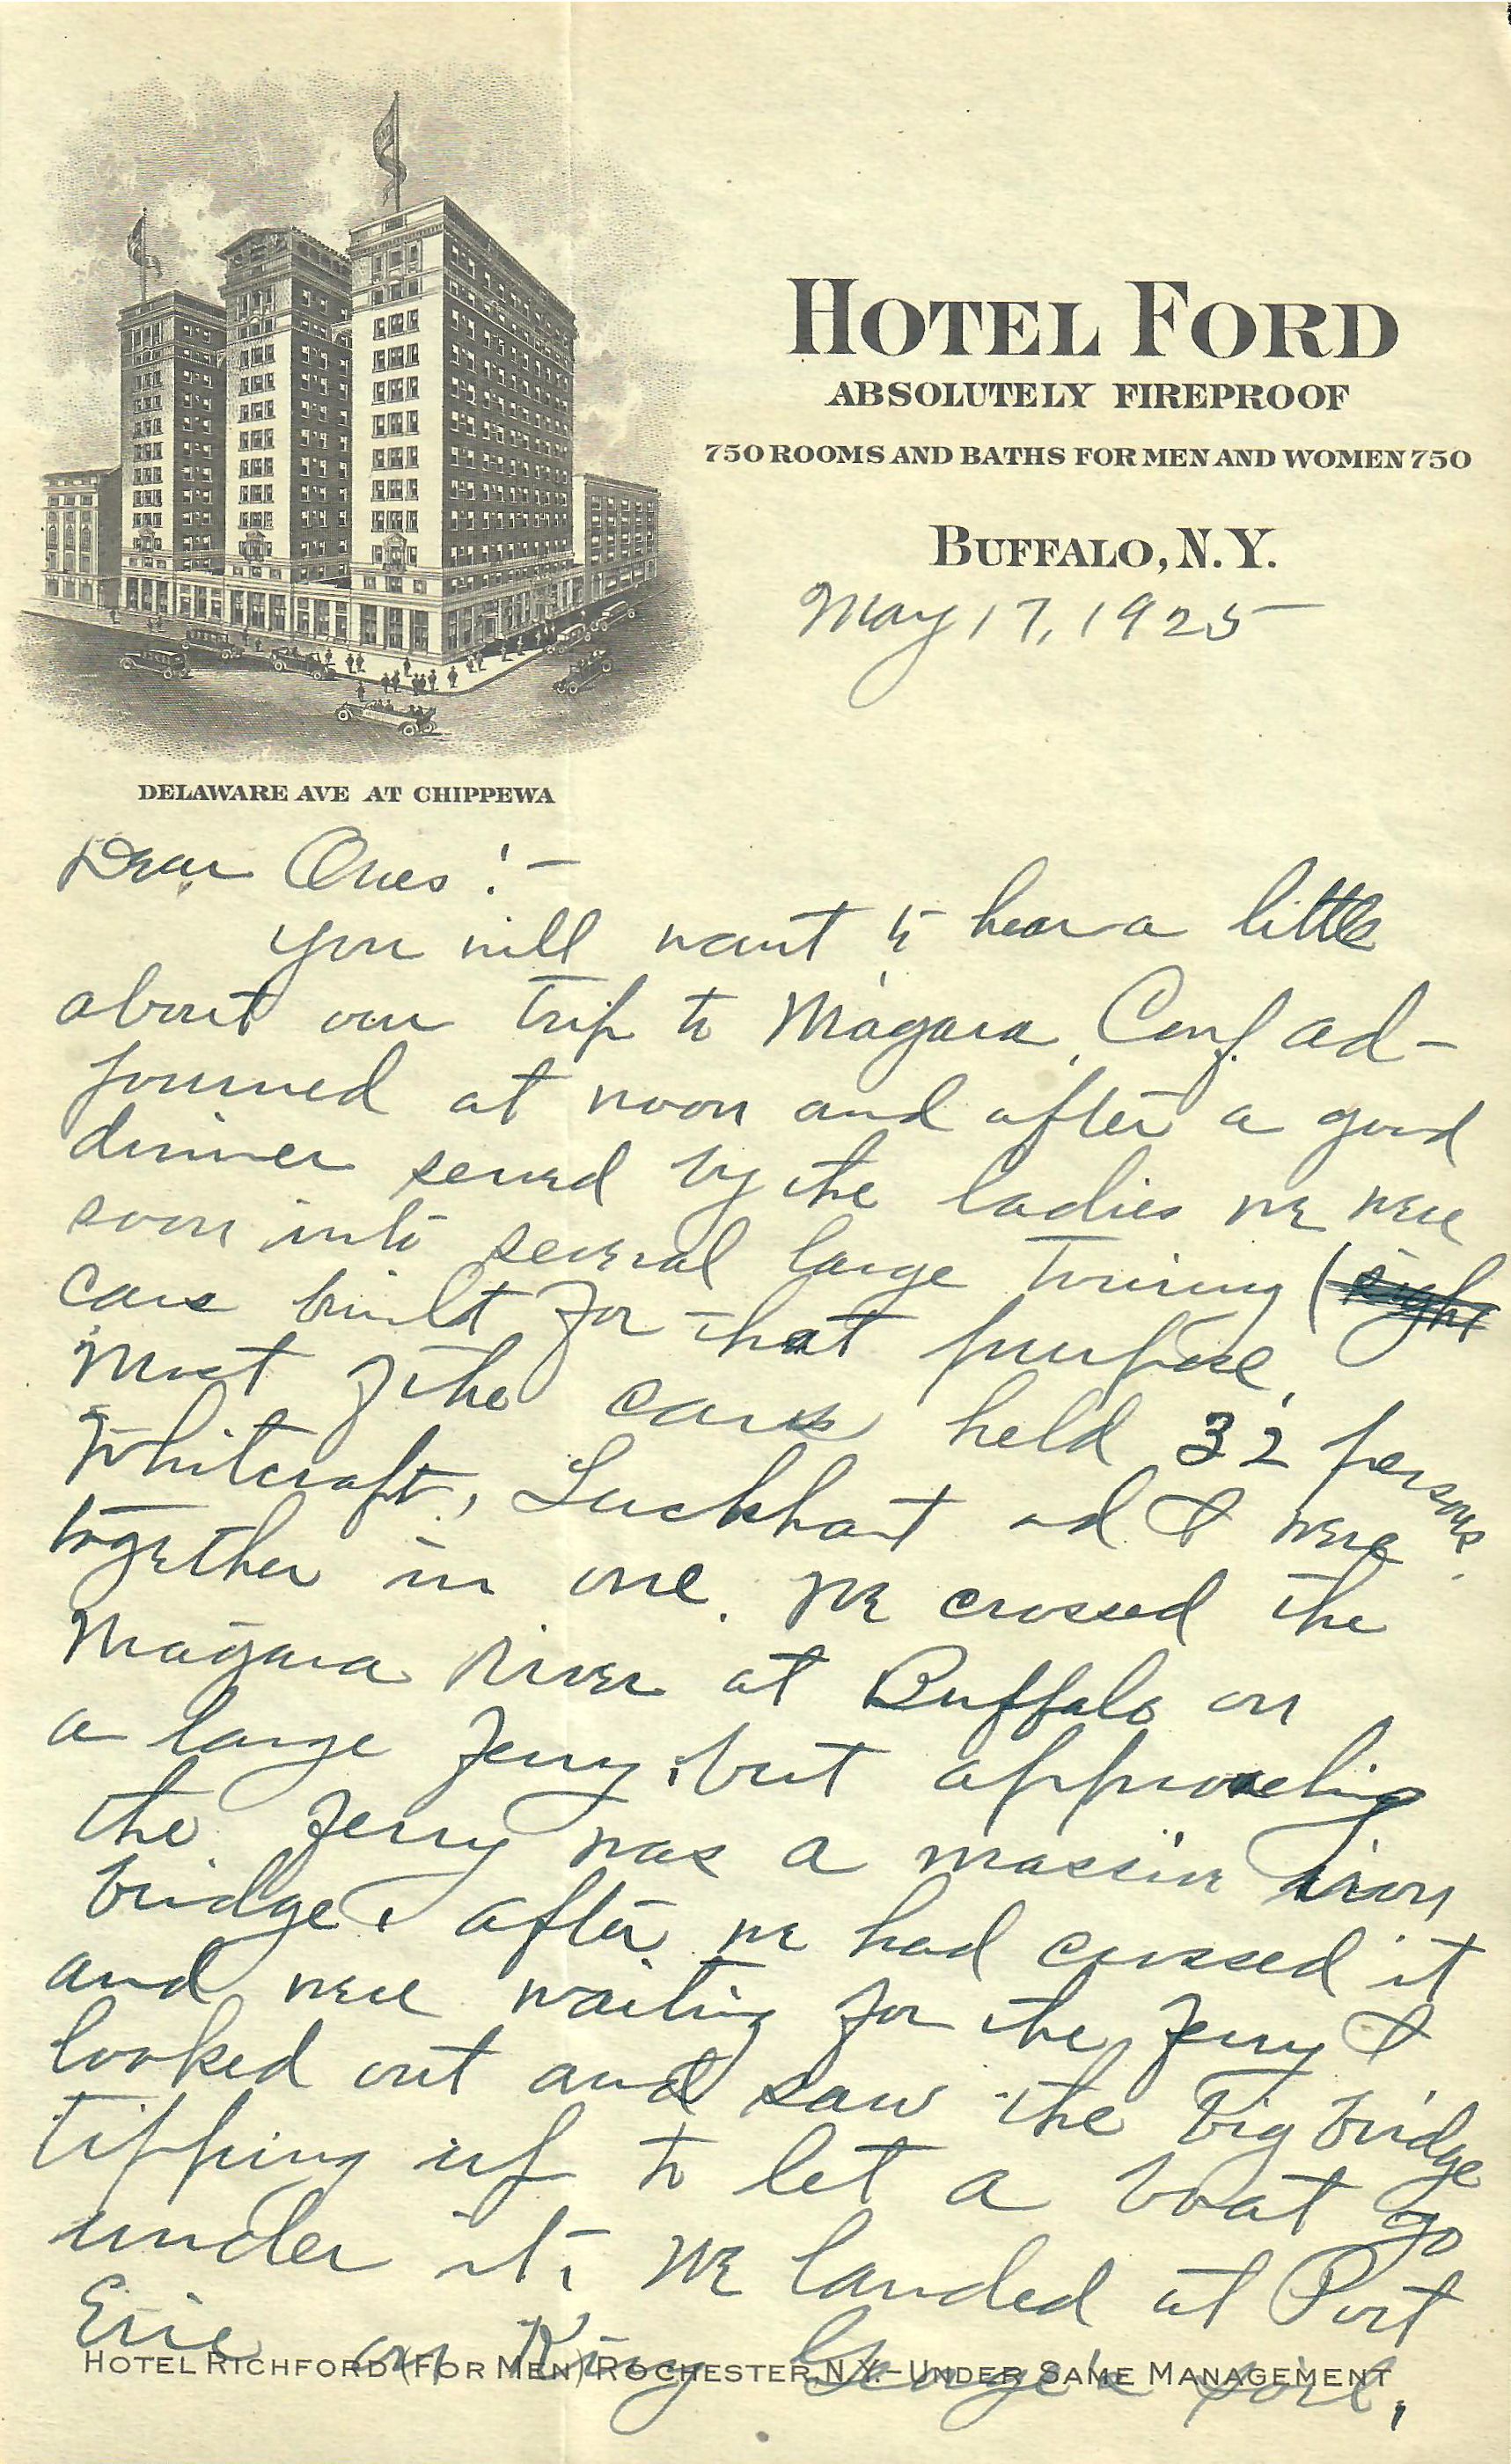 HOTEL FORD
ABSOLUTELY FIREPROOF
750 ROOMS AND BATHS FOR MEN AND WOMEN 750
BUFFALO, N.Y.
May 17, 1925
DELAWARE AVE AT CHIPPEWA
Dear Ones:-
You will want to hear a little
about our trip to Niagara. Conf. ad-
journed at noon and after a good
dinner served by the ladies we were
soon into several large Touring (sight
cars built for that purpose.
Most of the cars held 32 persons.
Whitcraft, Luckhart and I were
together in one. We crossed the
Niagara River at Buffalo on
a large ferry, but approaching
the ferry was a massive iron
bridge & after we had crossed it
and were waiting for the ferry I
looked out and saw the big bridge
tipping up to let a boat go
under it. We landed at Port
Erie on King George's soil.
HOTEL RICHFORD (FOR MEN) ROCHESTER, N.Y.-UNDER SAME MANAGEMENT